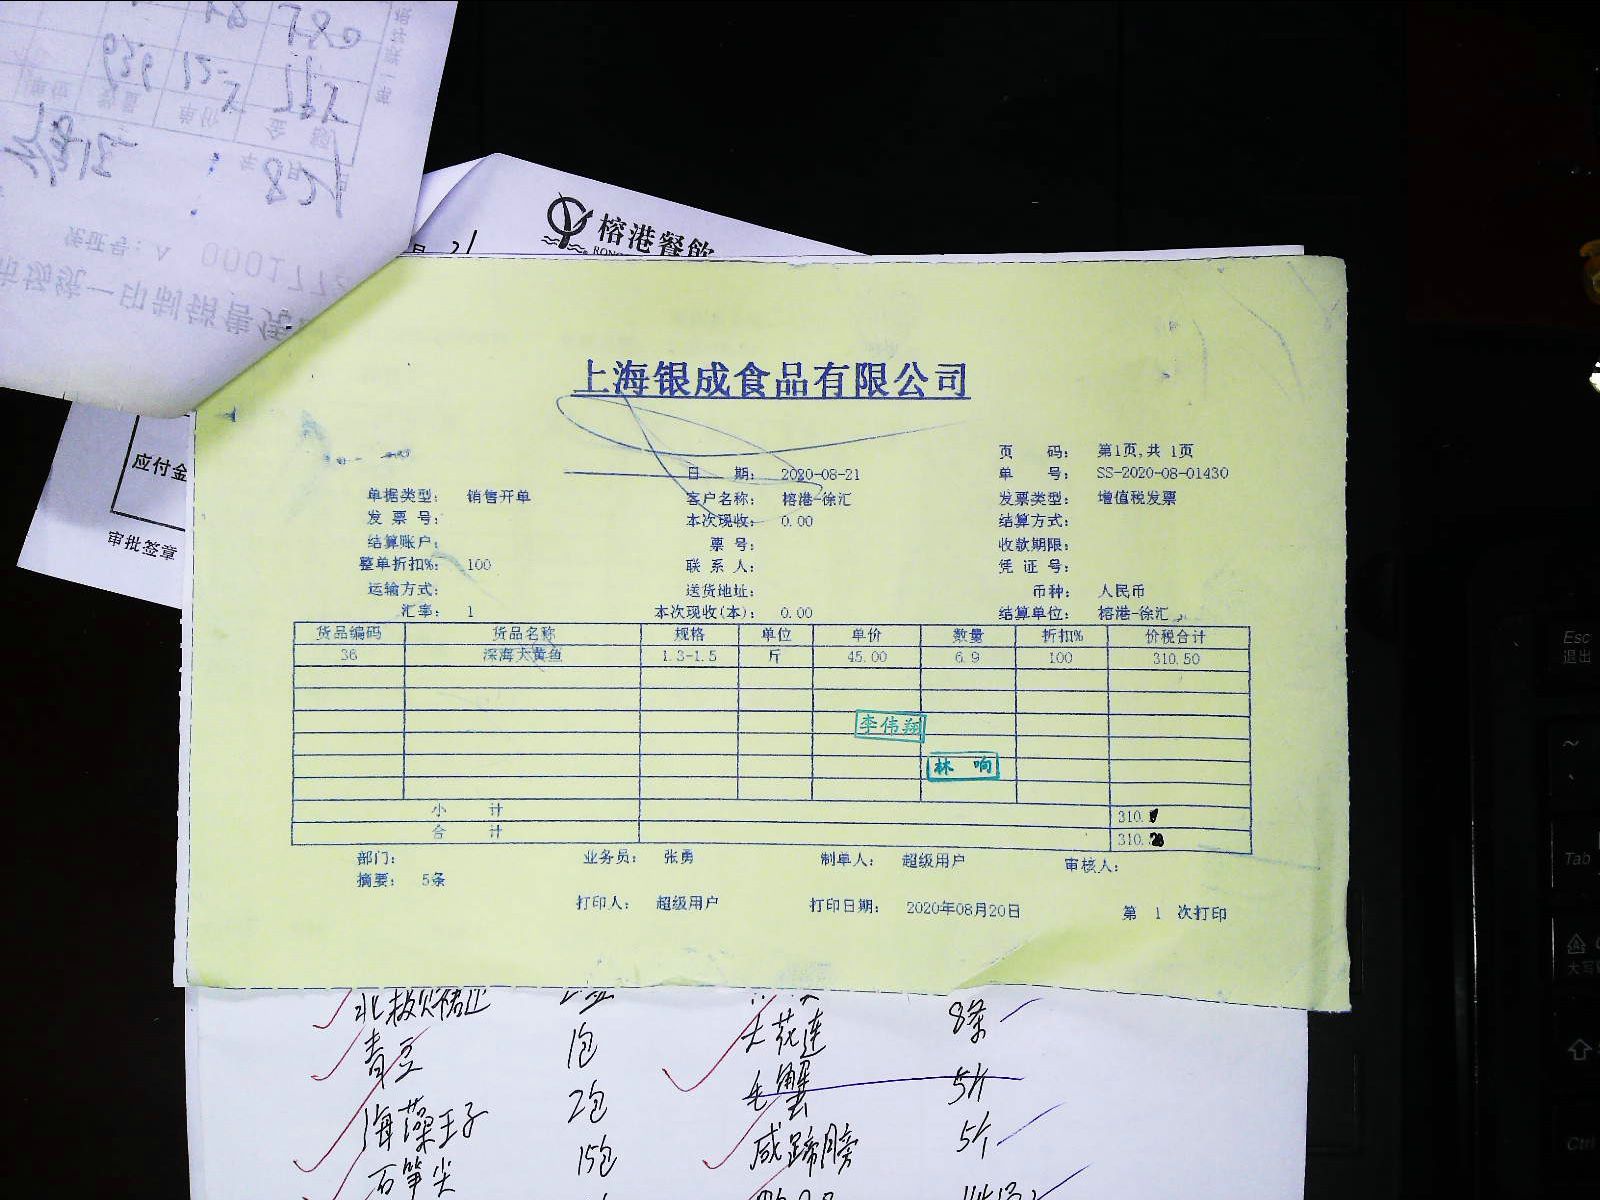 榕港餐飲
上海银成食品有限公司
页 码: 第1页,共 1页
日 期: 2020-08-21 单 号: SS-2020-08-01430
单据类型: 销售开单 客户名称: 榕港-徐汇 发票类型: 增值税发票
发 票 号: 本次现收: 0.00 结算方式:
结算账户: 票 号: 收款期限:
整单折扣%: 100 联 系 人: 凭 证 号:
运输方式: 送货地址: 币种: 人民币
汇率: 1 本次现收(本): 0.00 结算单位: 榕港-徐汇
货品编码 货品名称 规格 单位 单价 数量 折扣% 价税合计
36 深海大黄鱼 1.3-1.5 斤 45.00 6.9 100 310.50
李伟翔
林 响
小 计 310.
合 计 310.
部门: 业务员: 张勇 制单人: 超级用户 审核人:
摘要: 5条
打印人: 超级用户 打印日期: 2020年08月20日 第 1 次打印
应付金
审批签章
大花莲 8条
青豆 1包
毛蟹 5斤
2包
咸蹄膀 5个
石笋尖 15包
Esc
退出
Tab
Ctrl